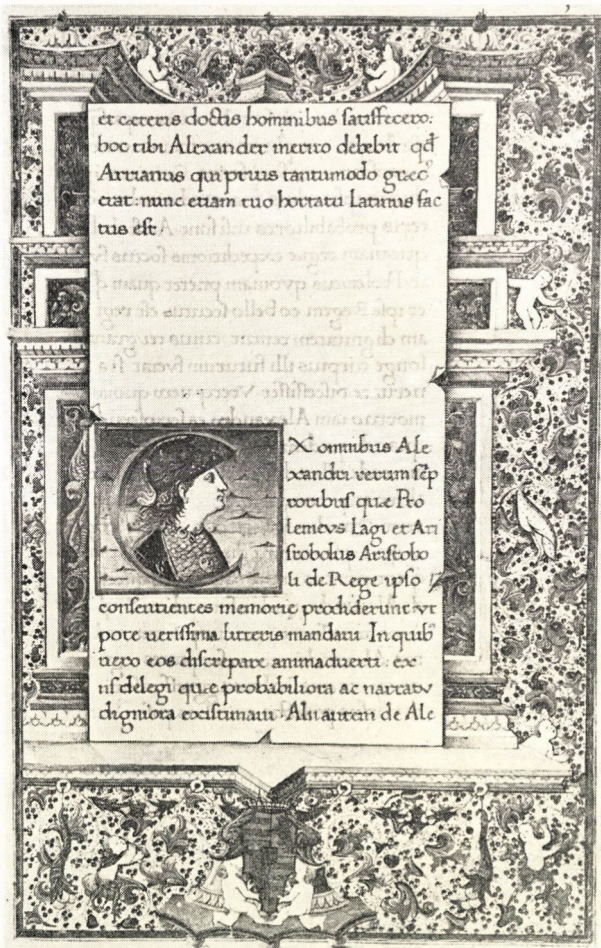 et cæteris doctis hominibus satisfecero:
hoc tibi Alexander merito debebit qd
Arrianus qui prius tantumodo grec
erat: nunc etiam tuo hortatu Latinus fac
tus est
EX omnibus Ale
xandri rerum
toribus que Pto
lemeus Lagi et Ari
stobolus Aristobo
li de Rege ipso
consentientes memorie prodiderunt ut
pote uerissima litteris mandaui. In quib
uero eos discrepare animaduerti: ex
iis delegi que probabiliora ac narratu
digniora existimaui. Alii autem de Ale